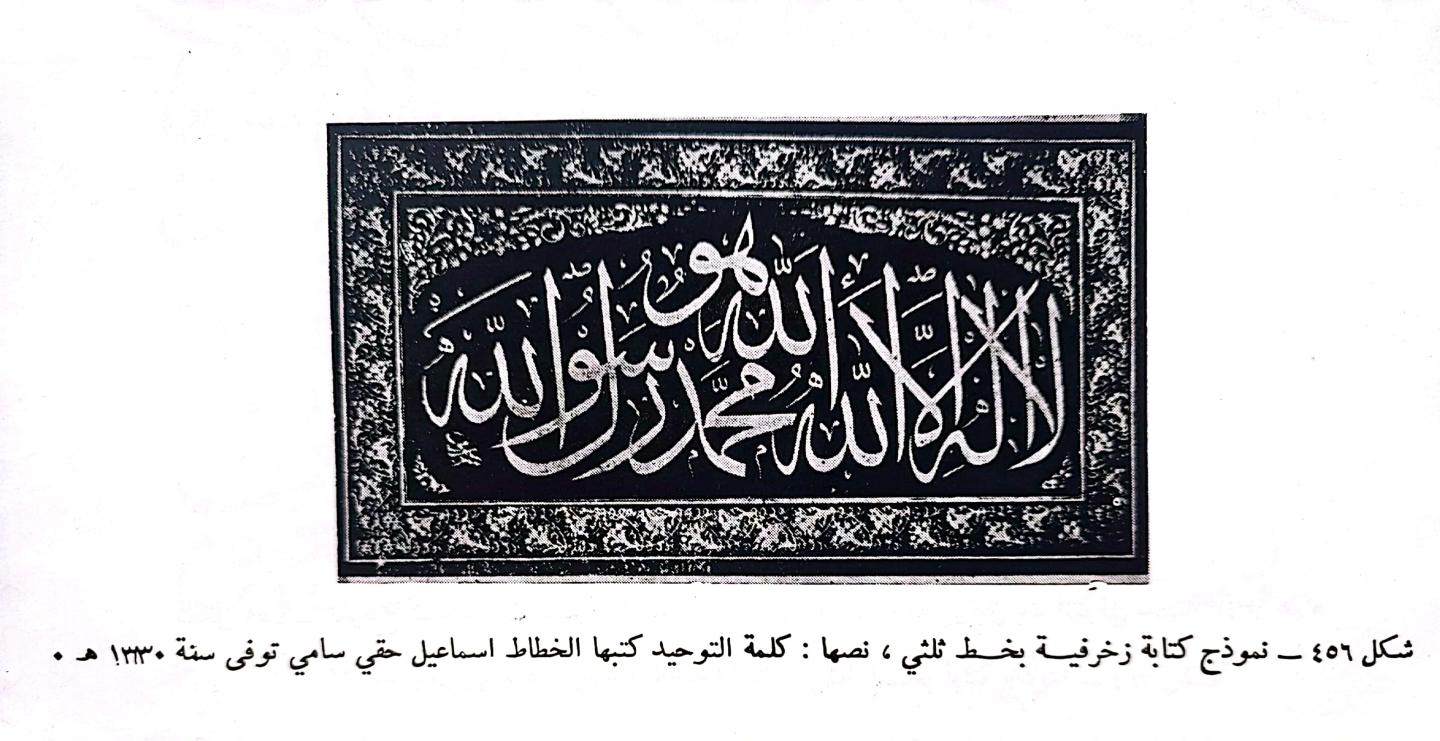 هو الله
لا إله إلا الله محمد رسول الله
شكل ٤٥٦ ــ نموذج كتابة زخرفية بخط ثلثي ، نصها : كلمة التوحيد كتبها الخطاط اسماعيل حقي سامي توفى سنة ١٣٣٠ هـ .